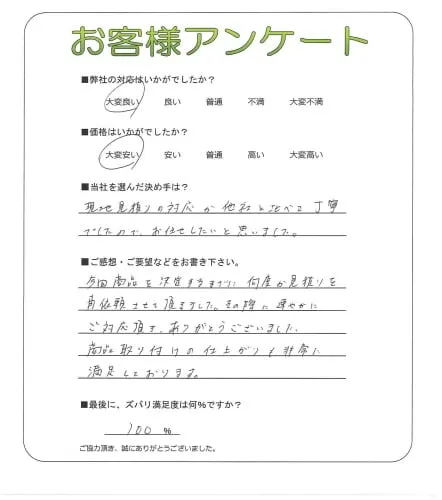 お客様アンケート
■弊社の対応はいかがでしたか？
大変良い 良い 普通 不満 大変不満
■価格はいかがでしたか？
大変安い 安い 普通 高い 大変高い
■当社を選んだ決め手は？
現地見積りの対応が他社と比べて丁寧
でしたので、お任せしたいと思いました。
■ご感想・ご要望などをお書き下さい。
今回商品を決定するまでに何度か見積りを
再依頼させて頂きました。その際に速やかに
ご対応頂き、ありがとうございました。
商品取り付けの仕上がりも非常に
満足しております。
■最後に、ズバリ満足度は何％ですか？
100 ％
ご協力頂き、誠にありがとうございました。